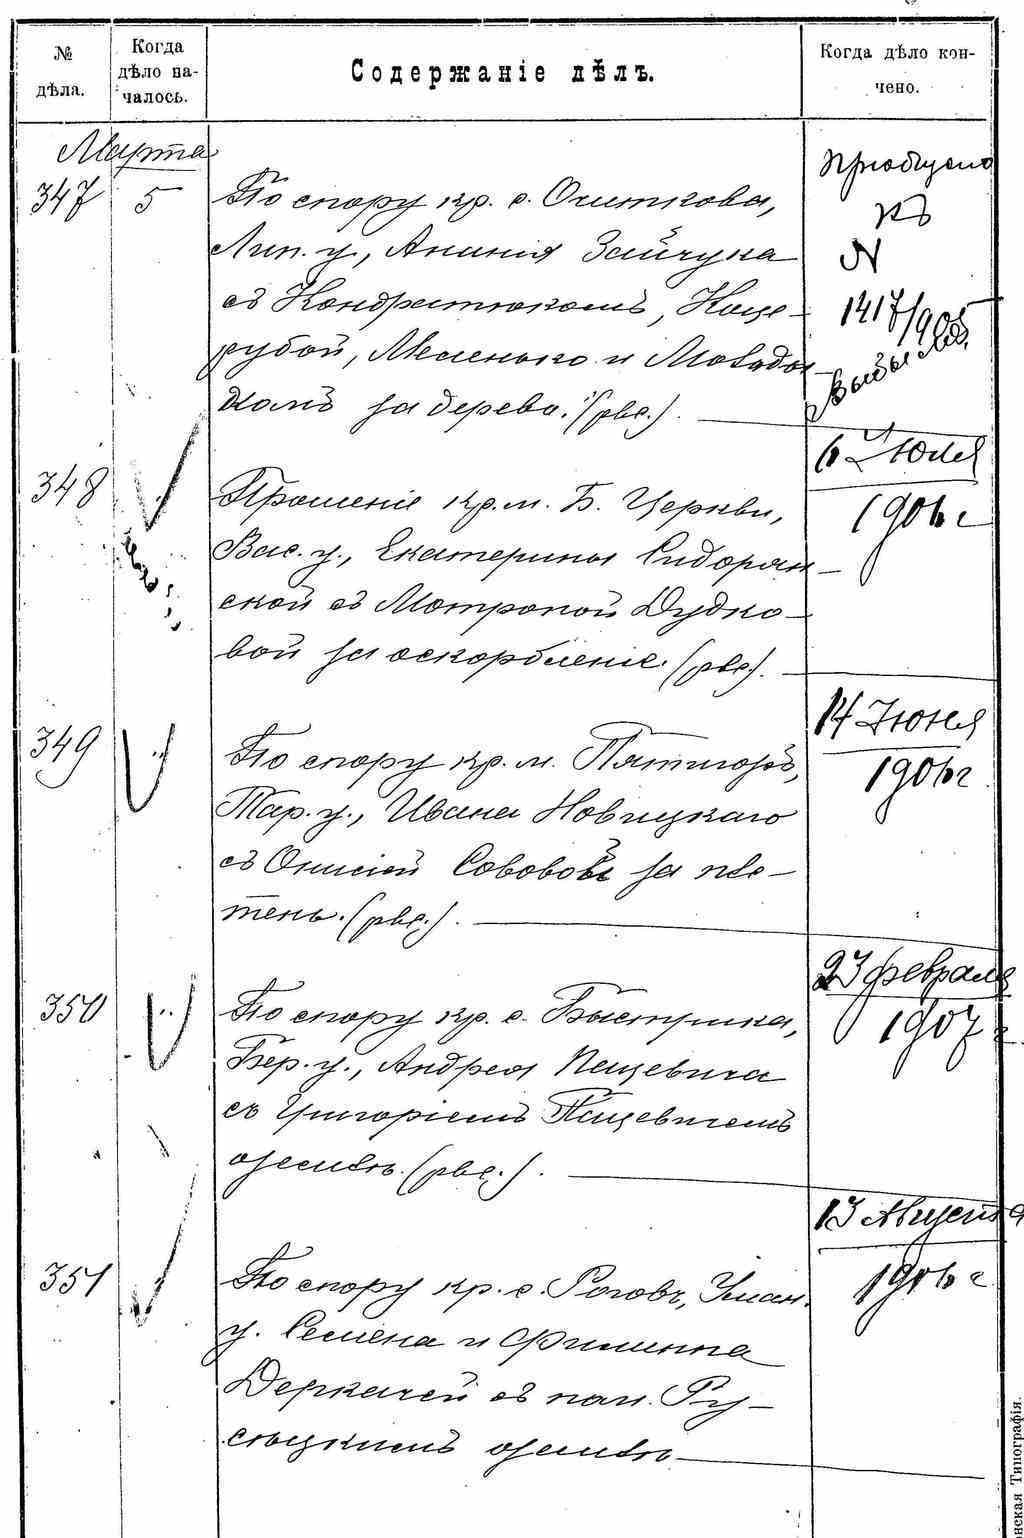 № дѣла.
Когда дѣло началось.
Содержаніе дѣлъ.
Когда дѣло кончено.
Марта
347 5
По спору кр. с. Очиткова,
Лип. у., Анинія Зайчука
съ Кондратюкомъ, Коце-
рубой, Меленько и
комъ за дерево. (рвс.).
Пріобщено
къ
N
1417/905
348
Прошеніе кр. м. Б. Церкви,
Вас. у., Екатерины Сидорян-
ской съ Мотроной Дудко-
вой за оскорбленіе. (рвс.).
6 Июля
1906 г
349
По спору кр. м. Пятигоръ,
Тар. у., Ивана Новицкаго
съ Онисіей за пле-
тень. (рвс.).
14 Июня
1906 г.
350
По спору кр. с. Быстрика,
Бер. у., Андрея Пацевича
съ Григоріемъ Пацевичемъ
о землѣ. (рвс.).
23 февраля
1907 г
351
По спору кр. с. Роговъ, Уман.
у. Семена и Филиппа
Деркачей съ пом. Ру-
сѣцкимъ о землѣ
13 Августа
1906 г
нская Типографія.